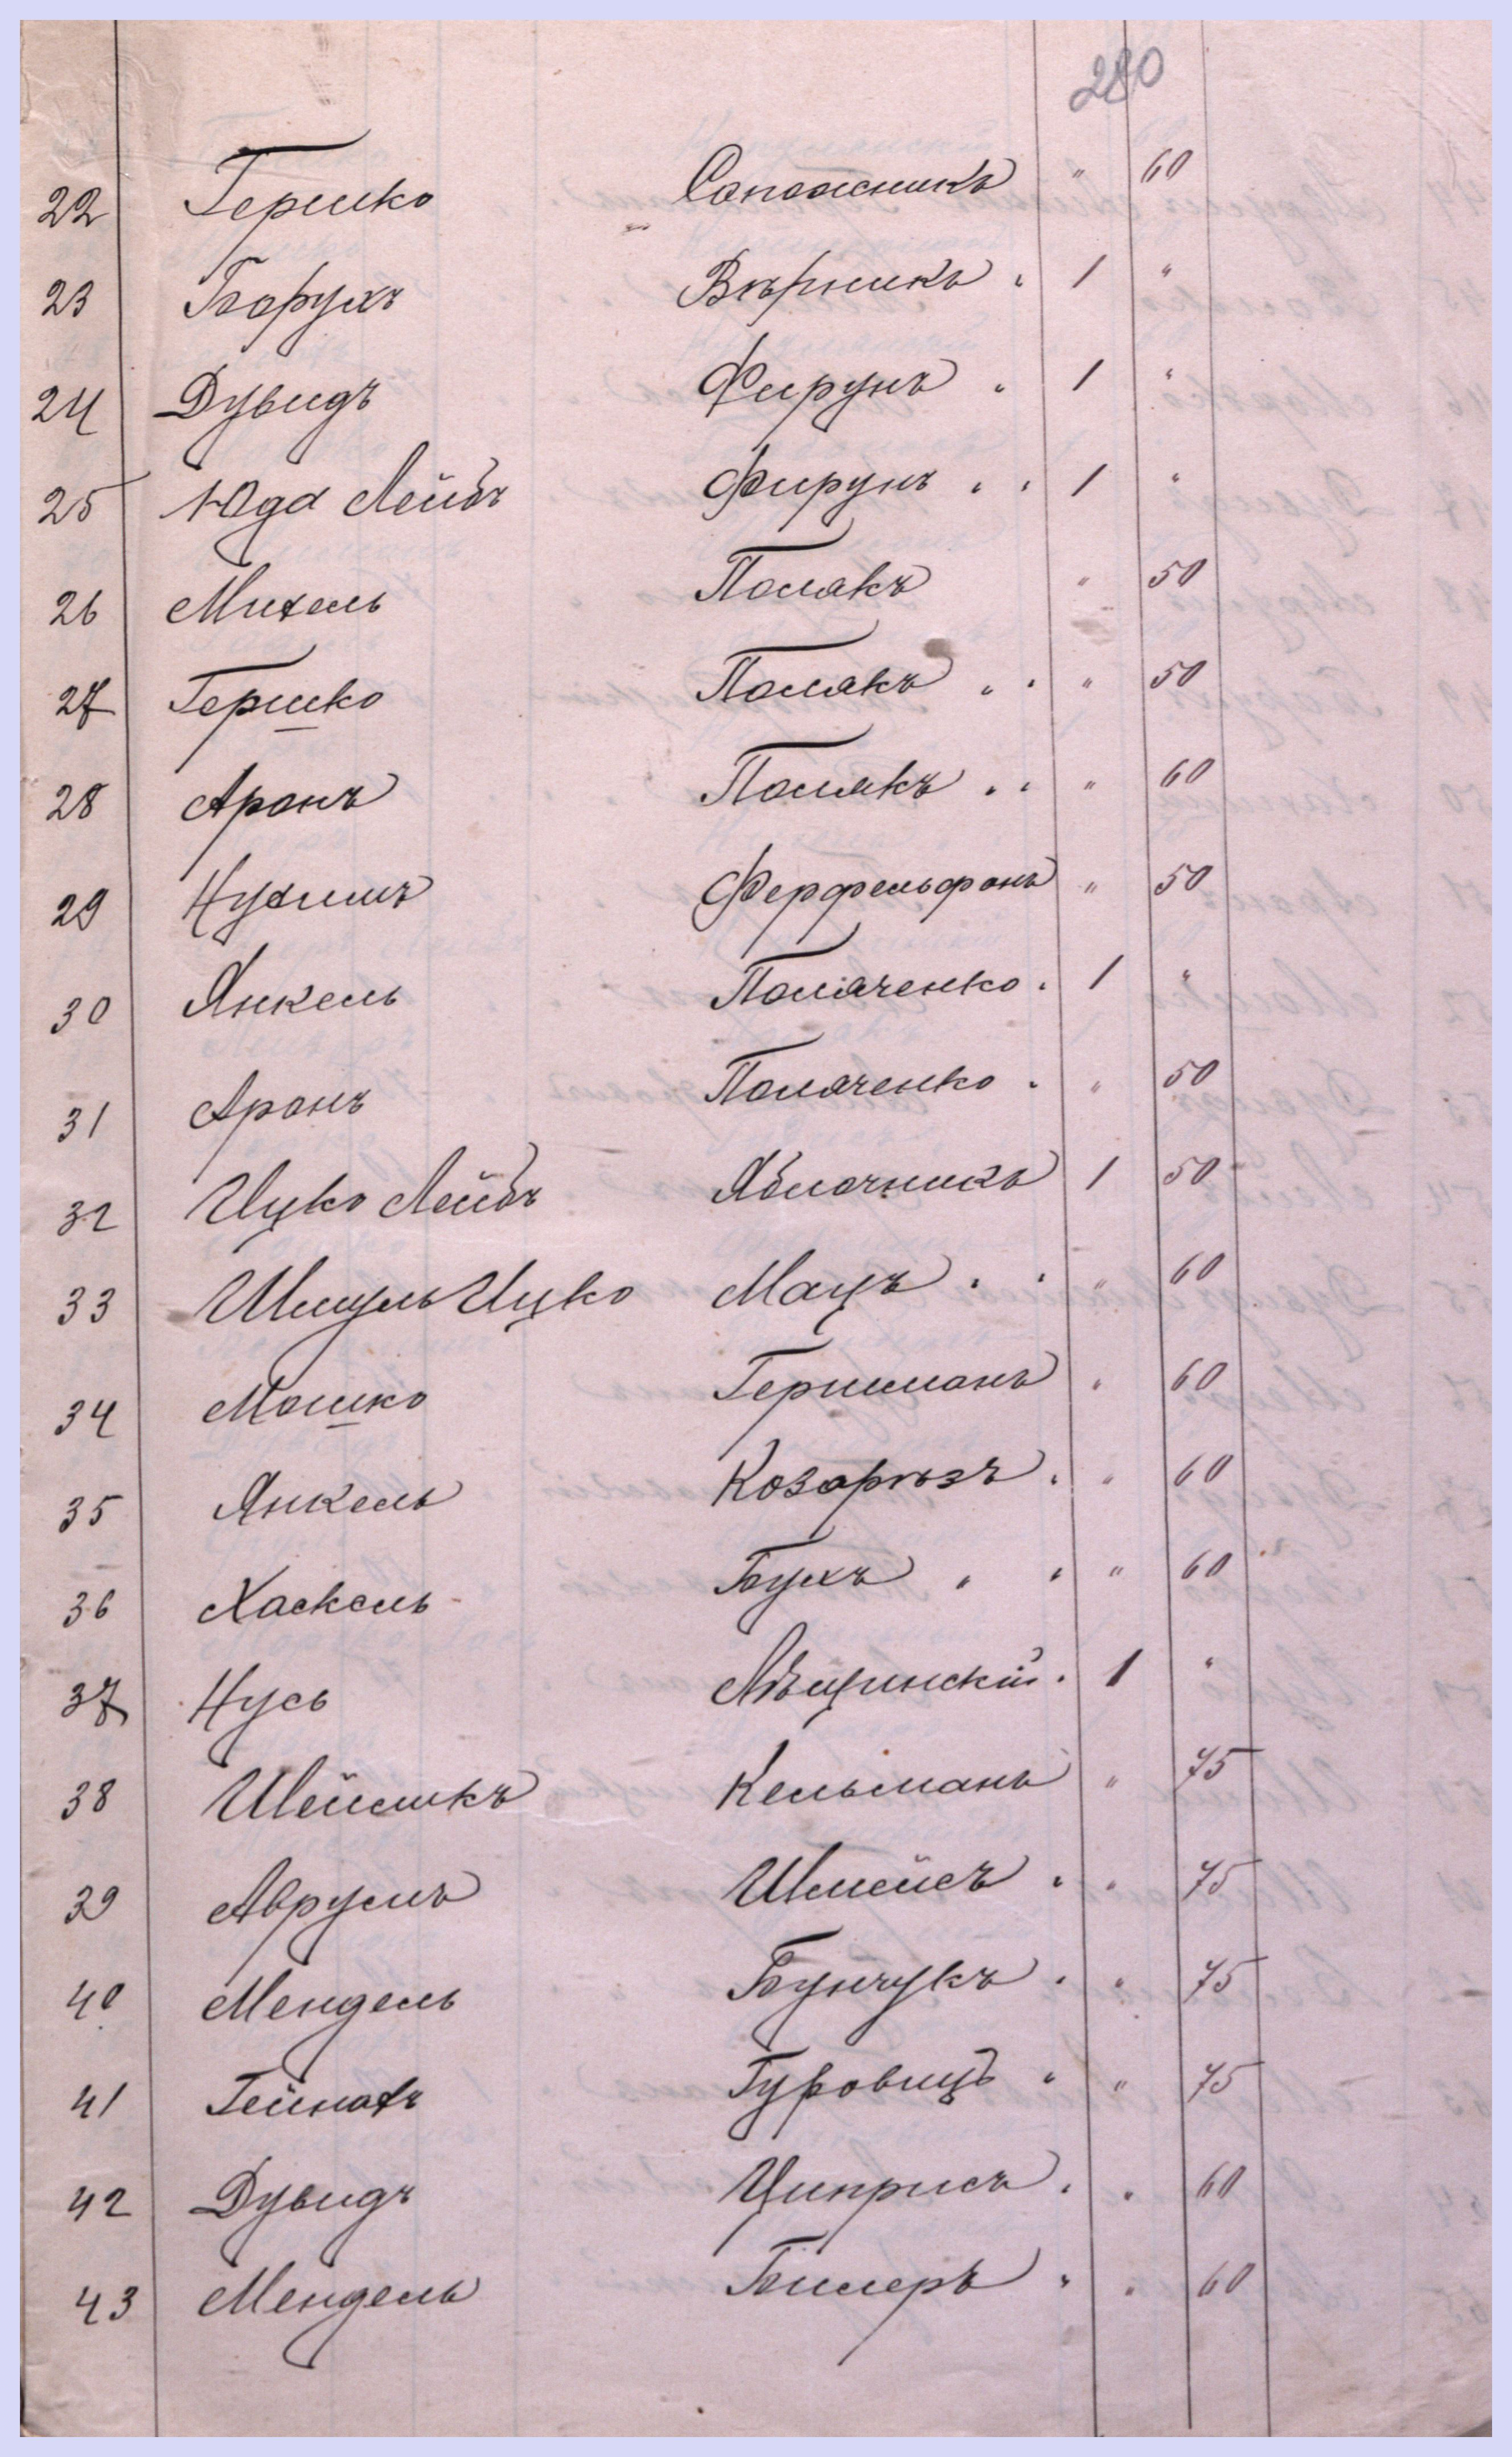 280
22 Гершко Сапожникъ " 60
23 Борухъ Вѣрникъ . 1 "
24 Дувидъ Фирунъ . 1 "
25 Юда Лейбъ Фирунъ . . 1 "
26 Михель Полякъ " 50
27 Гершко Полякъ . . " 50
28 Аронъ Полякъ . . " 60
29 Нухимъ Ферфельфонъ " 50
30 Янкель Поляченко . 1 "
31 Аронъ Поляченко . " 50
32 Ицко Лейбъ Яблочникъ 1 50
33 Шмуль Ицко Мацъ . . " 60
34 Мошко Гершманъ . 60
35 Янкель Козарѣзъ . " 60
36 Хаскель Бухъ . . " 60
37 Нусь Лѣщинскій . 1 "
38 Шейликъ Кельманъ " 75
39 Аврумъ Шмейсъ . . 75
40 Мендель Бунчукъ . " 75
41 Гейнохъ Гуровицъ . " 75
42 Дувидъ Циприсъ . . 60
43 Мендель Билеръ . . 60